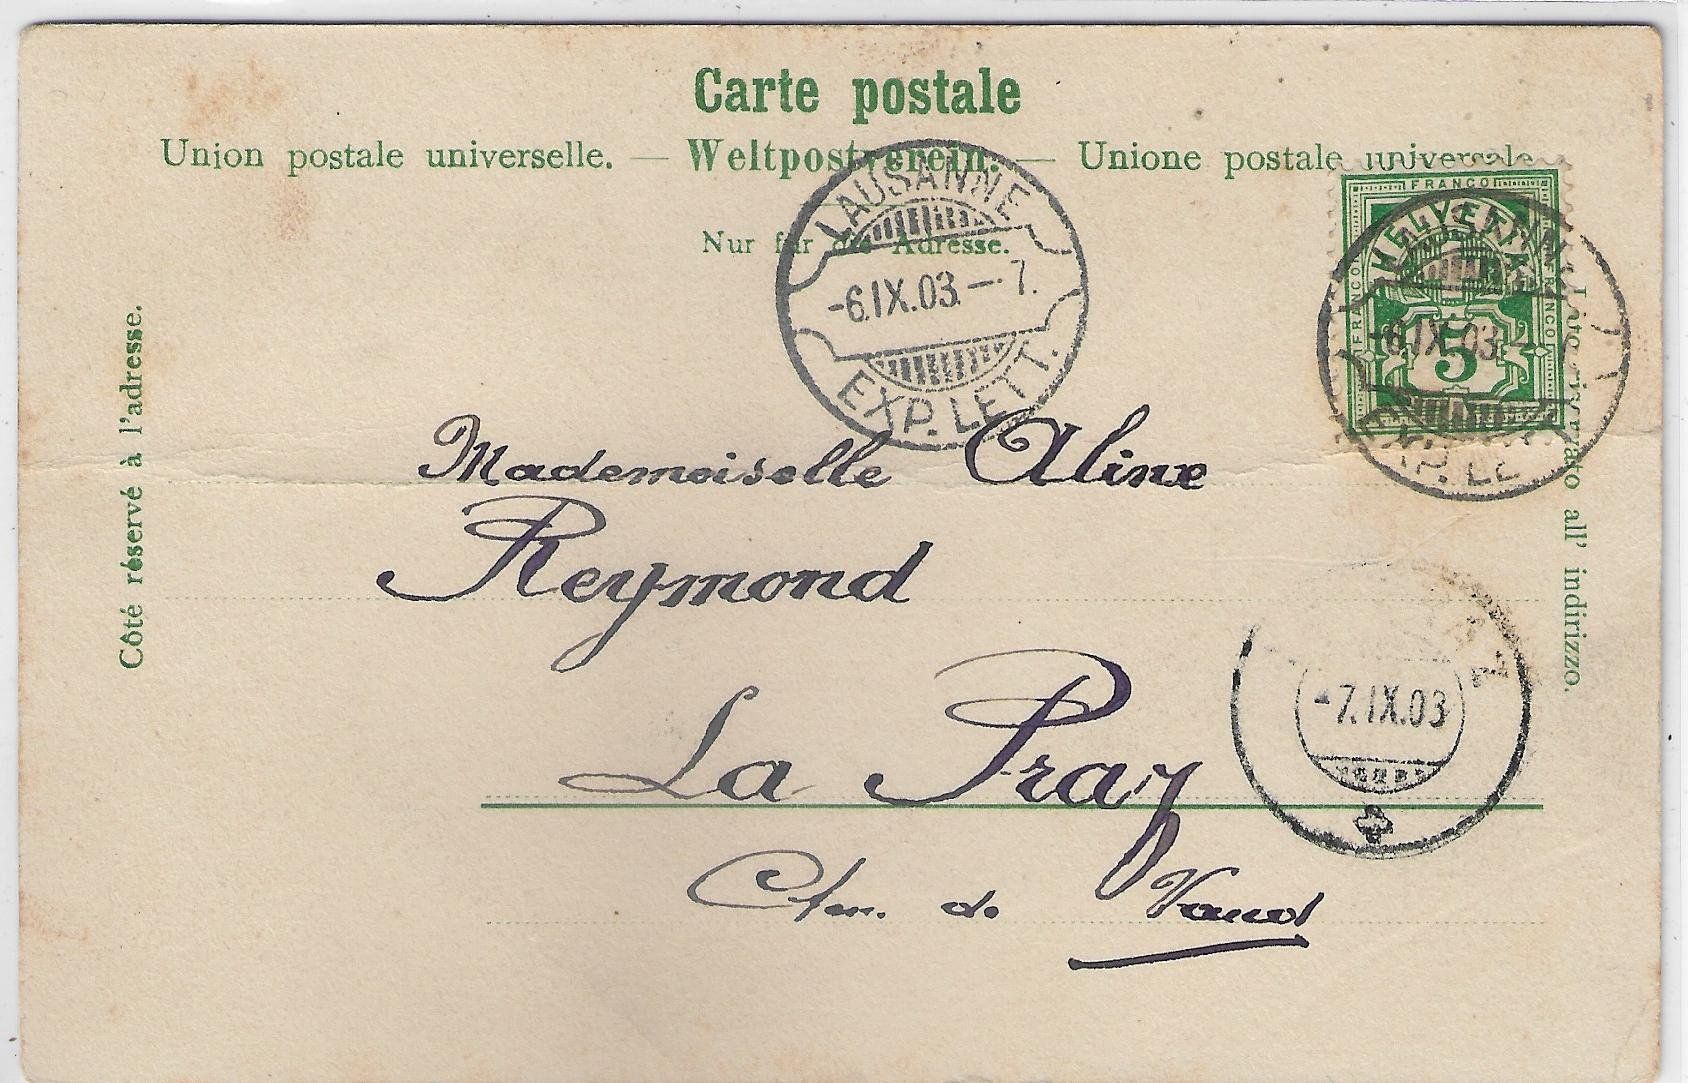 Carte postale
Union postale universelle. — Weltpostverein. — Unione postale universale
Nur für die Adresse.
Côté réservé à l'adresse.
Lato riservato al' indirizzo.
FRANCO
FRANCO
FRANCO
HELVETIA
5
LAUSANNE
-6.IX.03.—7.
EXP. LETT.
-6.IX.03
EXP. LE
-7.IX.03
Mademoiselle Aline
Reymond
La Praz
Cten. de Vaud